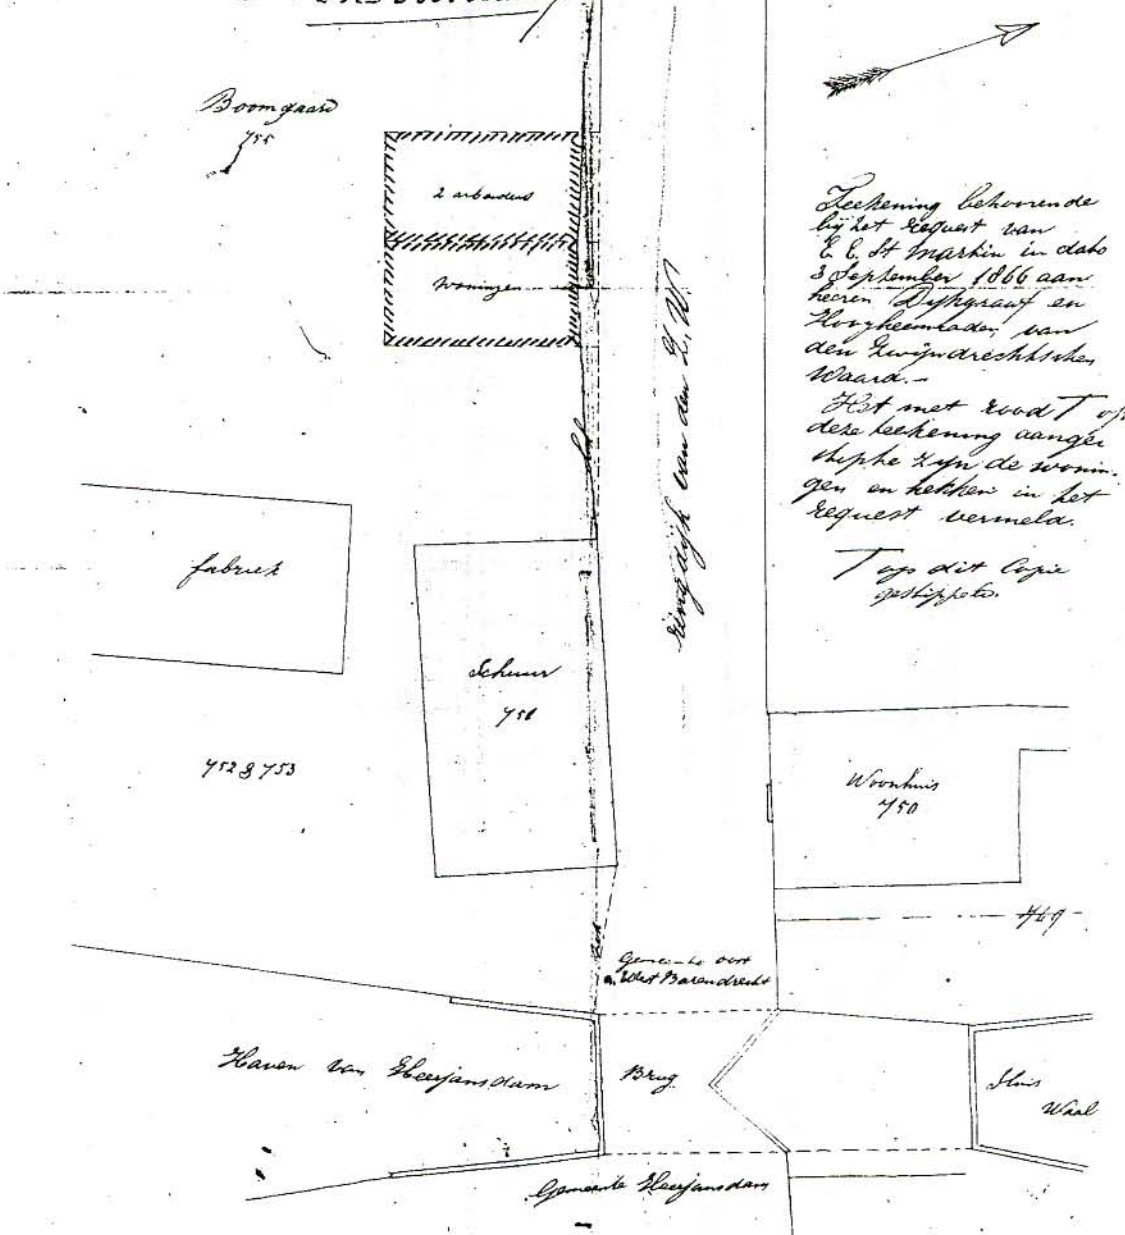 Boomgaard
755
2 arbeiders
Woningen
ringdijk van den Z. W.
Teekening behoorende
bij het request van
E. E. St Martin in dato
3 September 1866 aan
heeren Dijkgraaf en
Hoogheemraden van
den Zwijndrechtschen
Waard.-
Het met rood T op
deze teekening aange
stipte zijn de wonin-
gen en hekken in het
request vermeld.
T op dit Copie
gestippeld.
fabriek
Schuur
751
752 & 753
Woonhuis
750
749
hek
Gemeente oost
n. West Barendrecht
Haven van Heerjansdam
Brug
Sluis
Waal
Gemeente Heerjansdam